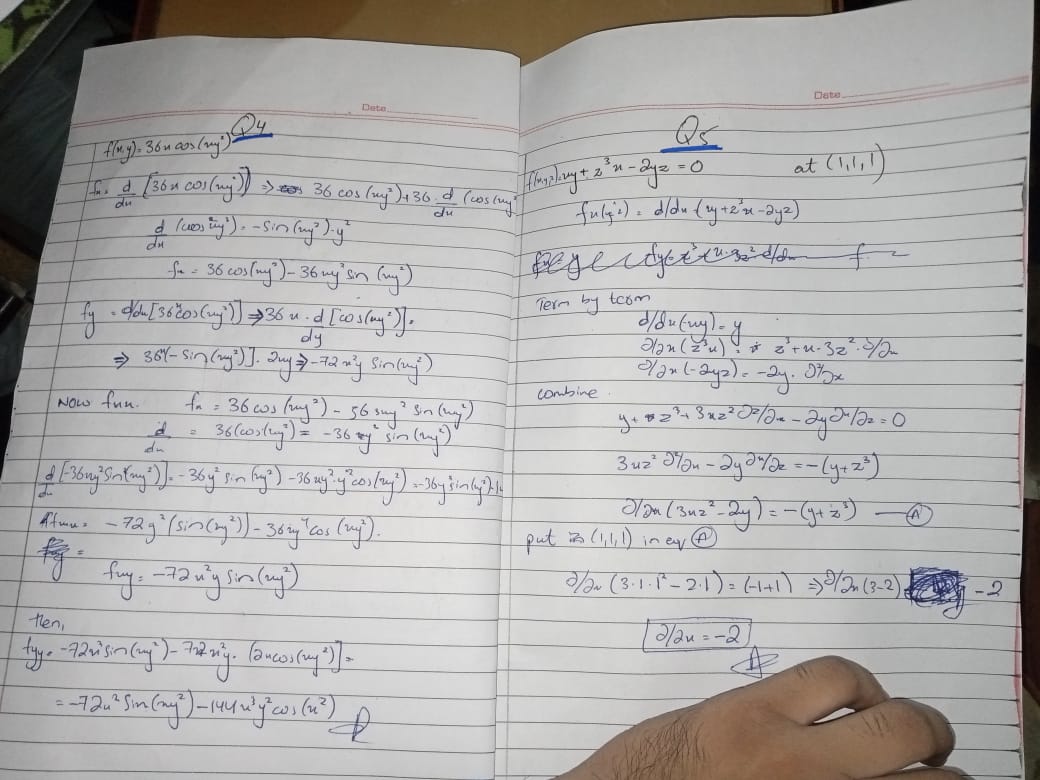 Date
Q4
f(x,y) = 36x cos(xy²)
fx = d/dx [36x cos(xy²)] ⇒ 36 cos(xy²) + 36. d/dx (cos(xy²
d/dx (cos xy²) = -Sin(xy²).y²
fx = 36 cos(xy²) - 36xy² sin(xy²)
fy = d/dx [36x cos(xy²)] ⇒ 36x . d/dy [cos(xy²)].
⇒ 36x(-Sin(xy²)]. 2xy ⇒ -72x²y Sin(xy²)
Now fxx. fx = 36 cos(xy²) - 56 xy² Sin(xy²)
d/dx = 36(cos(xy²) = -36 y² sin(xy²)
d/dx [-36xy² Sin(xy²)] = -36y² sin(xy²) - 36xy².y² cos(xy²) = -36y² sin(xy²)
= -72y² (sin(xy²)) - 36xy⁴ cos(xy²).
fxy = -72x²y Sin(xy²)
then,
fyy = -72x² Sin(xy²) - 72x²y. (2x cos(xy²)] =
= -72x² Sin(xy²) - 144x³y² cos(x²)
Date
Q5
f(x,y,z) = xy + z³x - 2yz = 0 at (1,1,1)
fx(y,z) = d/dx (xy + z³x - 2yz)
Term by term
d/dx (xy) = y
∂/∂x (z³x) = z³ + x.3z². ∂/∂x
∂/∂x (-2yz) = -2y. ∂z/∂x
combine
y + z³ + 3xz² ∂z/∂x - 2y ∂x/∂z = 0
3xz² ∂z/∂x - 2y ∂x/∂z = -(y+z³)
∂/∂x (3xz² - 2y) = -(y+z³) — (A)
put (1,1,1) in eq (A)
∂/∂x (3.1.1² - 2.1) = (-1+1) ⇒ ∂/∂x (3-2) -2
∂/∂x = -2